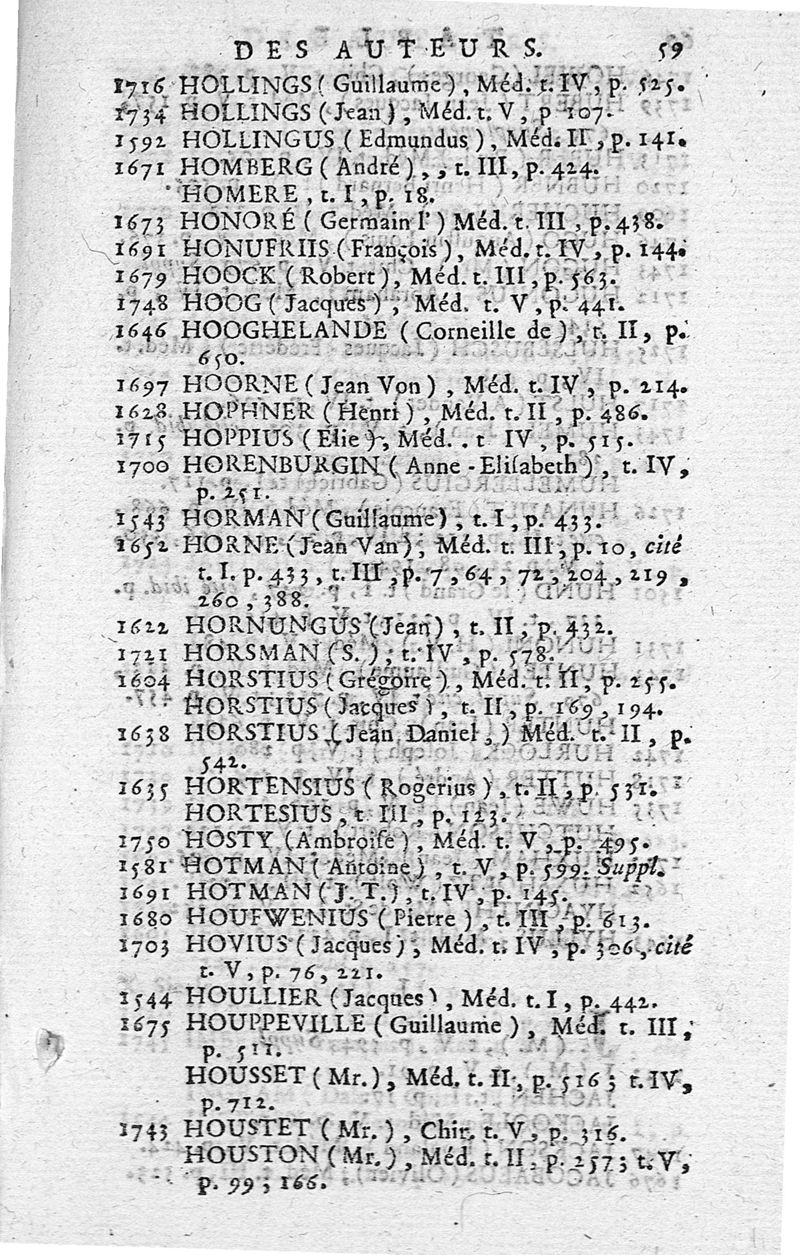 DES AUTEURS. 59
1716 HOLLINGS ( Guillaume ) , Méd. t. IV , p. 525.
1734 HOLLINGS ( Jean ) , Méd. t. V , p 107.
1592 HOLLINGUS ( Edmundus ) , Méd. II , p. 141.
1671 HOMBERG ( André ) , , t. III , p. 424.
HOMERE , t. I , p. 18.
1673 HONORÉ ( Germain l' ) Méd. t. III , p. 438.
1691 HONUFRIIS ( François ) , Méd. t. IV , p. 144.
1679 HOOCK ( Robert ) , Méd. t. III , p. 563.
1748 HOOG ( Jacques ) , Méd. t. V , p. 441.
1646 HOOGHELANDE ( Corneille de ) , t. II , p.
650.
1697 HOORNE ( Jean Von ) , Méd. t. IV , p. 214.
1628 HOPHNER ( Henri ) , Méd. t. II , p. 486.
1715 HOPPIUS ( Élie ) , Méd. . t IV , p. 515.
1700 HORENBURGIN ( Anne - Eliſabeth ) , t. IV ,
p. 251.
1543 HORMAN ( Guillaume ) , t. I , p. 433.
1652 HORNE ( Jean Van ) , Méd. t. III , p. 10 , cité
t. I. p. 433 , t. III , p. 7 , 64 , 72 , 204 , 219 ,
260 , 388.
1622 HORNUNGUS ( Jean ) , t. II , p. 432.
1721 HORSMAN ( S. ) , t. IV , p. 578.
1604 HORSTIUS ( Grégoire ) , Méd. t. II , p. 255.
HORSTIUS ( Jacques ) , t. II , p. 169 , 194.
1638 HORSTIUS ( Jean Daniel , ) Méd. t. II , p.
542.
1635 HORTENSIUS ( Rogerius ) , t. II , p. 531.
HORTESIUS , t. III , p. 123.
1750 HOSTY ( Ambroiſe ) , Méd. t. V , p. 495.
1581 HOTMAN ( Antoine ) , t. V , p. 599. Suppl.
1691 HOTMAN ( J. T. ) , t. IV , p. 145.
1680 HOUFWENIUS ( Pierre ) , t. III , p. 613.
1703 HOVIUS ( Jacques ) , Méd. t. IV , p. 306 , cité
t. V , p. 76 , 221.
1544 HOULLIER ( Jacques ) , Méd. t. I , p. 442.
1675 HOUPPEVILLE ( Guillaume ) , Méd. t. III ,
p. 511.
HOUSSET ( Mr. ) , Méd. t. II , p. 516 ; t. IV ,
p. 712.
1743 HOUSTET ( Mr. ) , Chir. t. V , p. 316.
HOUSTON ( Mr. ) , Méd. t. II , p. 257 ; t. V ,
p. 99 ; 166.